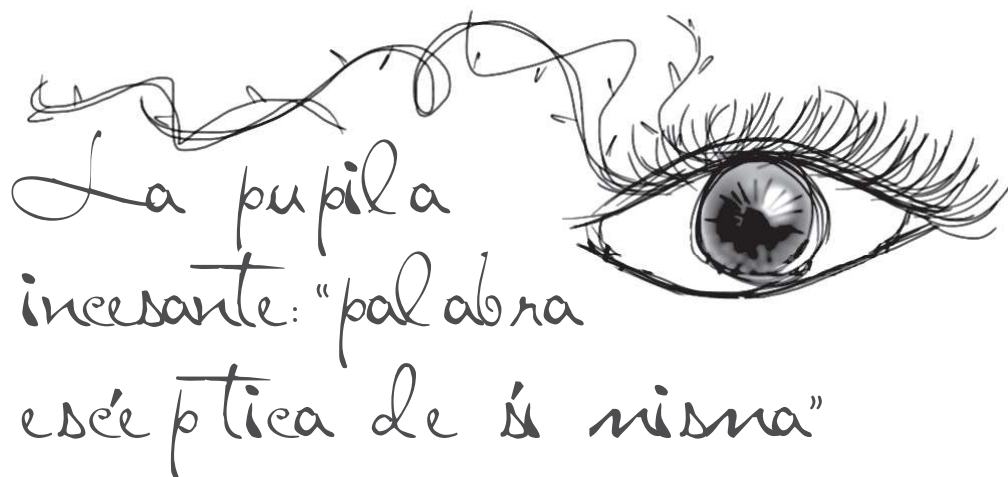 La pupila
incesante: "palabra
escéptica de sí misma"